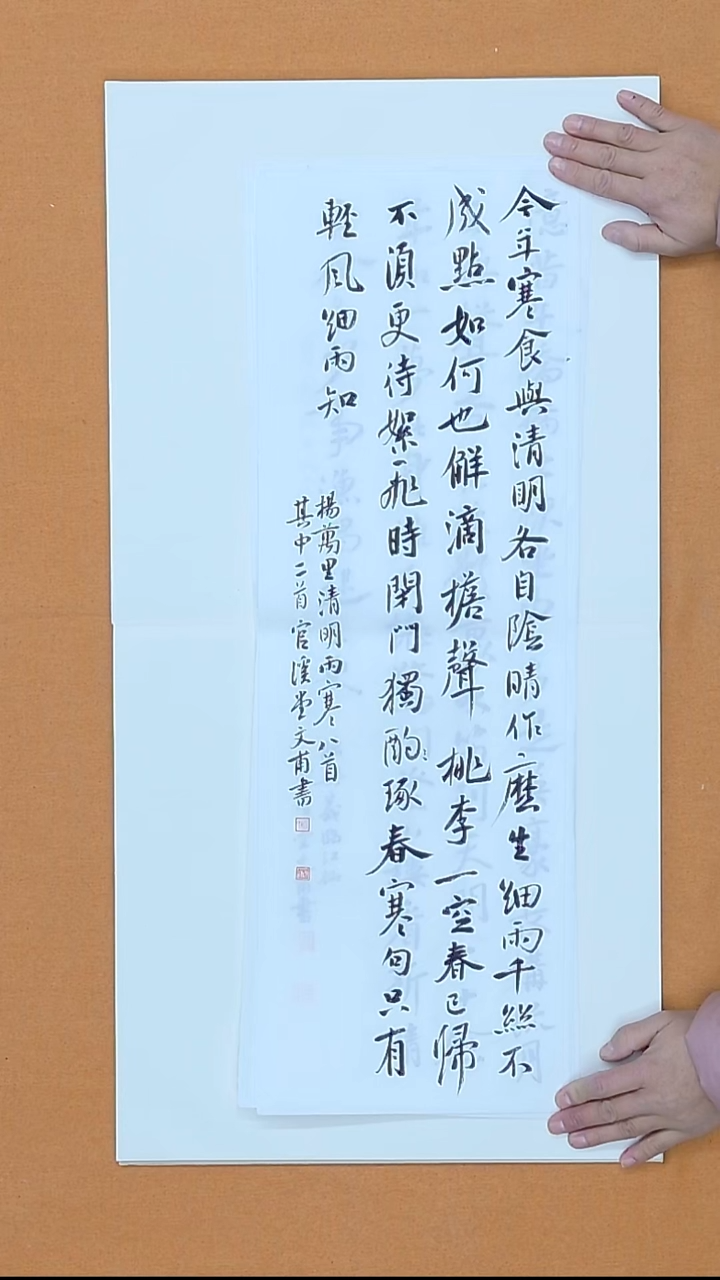 今年寒食與清明各自陰晴作麽生細雨千絲不
成點如何也解滴檐聲桃李一空春已歸
不須更待絮飛時閉門獨酌琢春寒句只有
輕風細雨知
楊萬里清明雨寒八首
其中二首官溪堂文甫書